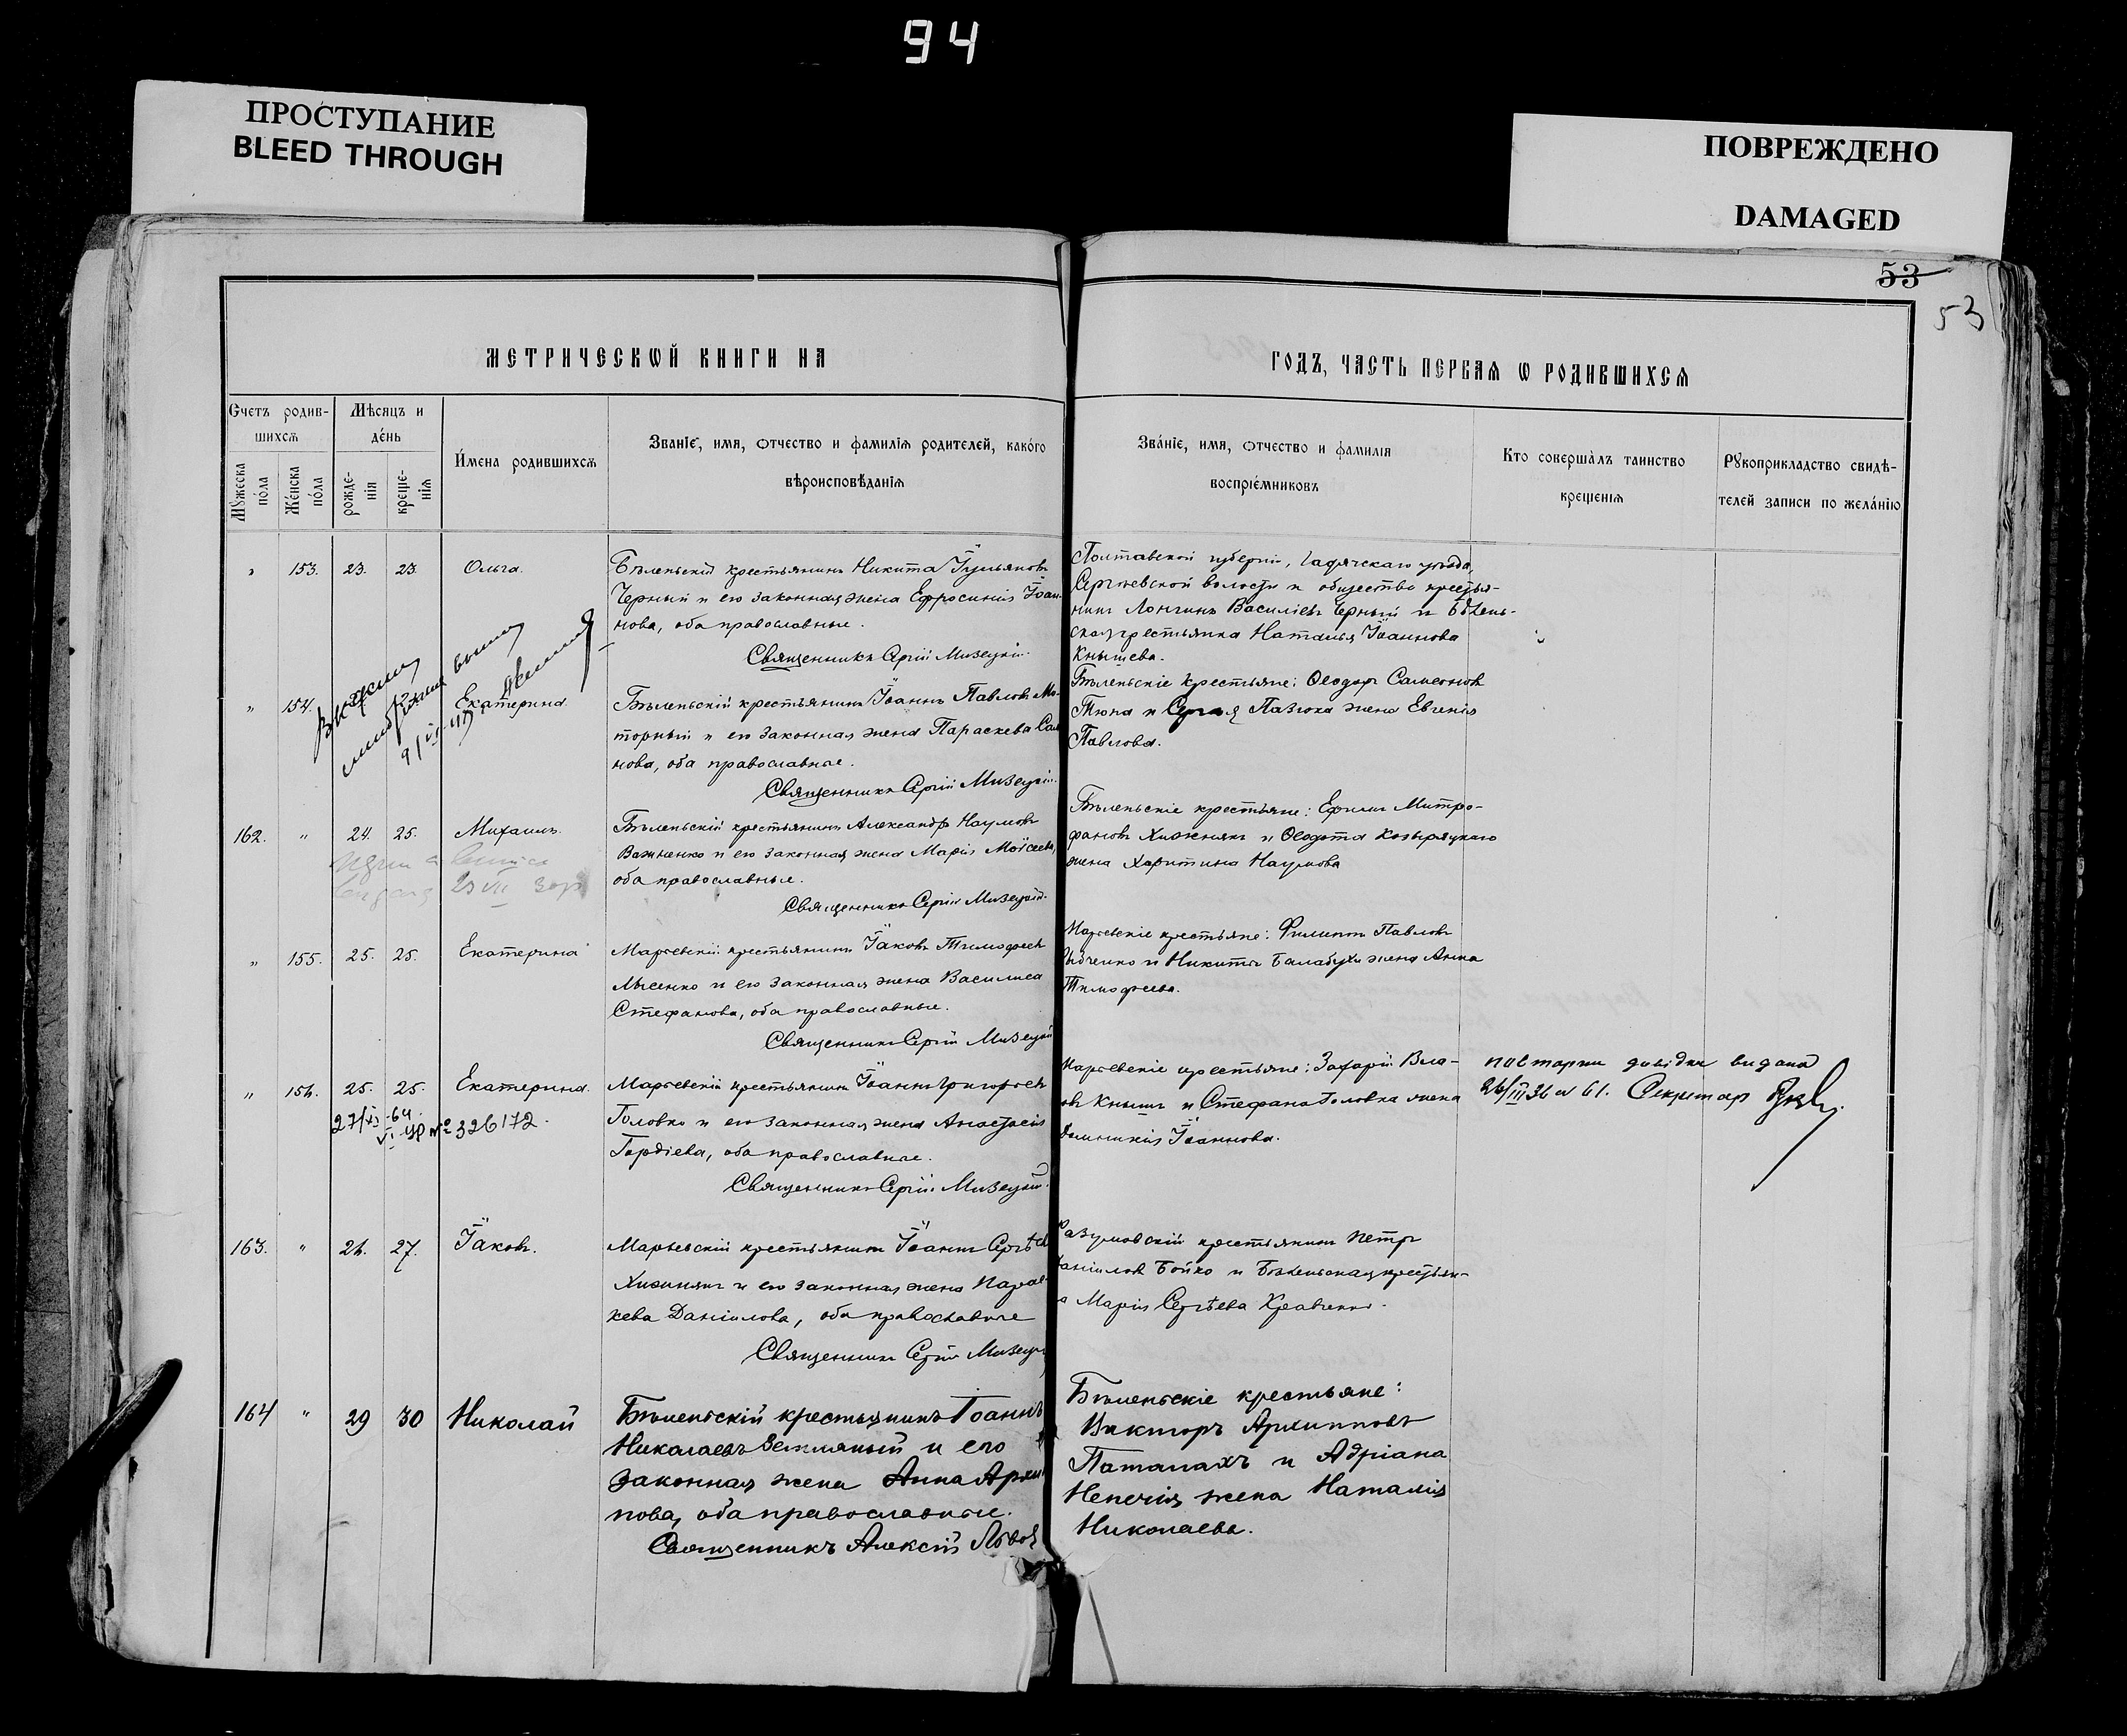 94
ПРОСТУПАНИЕ
BLEED THROUGH
ПОВРЕЖДЕНО
DAMAGED
53
53
МЕТРИЧЕСКѠЙ КНИГИ НА
ГОДЪ, ЧАСТЬ ПЕРВАѦ Ѡ РОДИВШИХСѦ
Счетъ родив-
шихсѧ
Мѣсяцъ и
де́нь
Мꙋжеска
по́ла
Же́нска
по́ла
рожде-
нія
креще-
нія
И́мена родившихсѧ
Званіе, имя, ѻтчество и фамилія родителей, како́го
вѣроисповѣданіѧ
Зва́ніе, имя, ѻтчество и фамилія
воспріе́мниковъ
Кто соверша̀лъ таинство
крещеніѧ
Рꙋкоприкладство свидѣ-
телей записи по жела́нію
" 153. 23. 23. Ольга.
Бѣленьскій крестьянинъ Никита
Черный и его законная жена Ефросинія Іоан-
нова, оба православные.
Священникъ Сергій
Полтавской губерніи, Гадячскаго уѣзда,
Сергѣевской волости и общества крестья-
нинъ Лонгинъ Василіевъ Черный и Бѣлень-
ская крестьянка Наталья Іоаннова
Кнышева.
" 154. Екатерина
Бѣленьскій крестьянинъ Іоаннъ Павловъ Мо-
торный и его законная жена Параскева
нова, оба православные.
Священникъ Сергій
Бѣленьскіе крестьяне: Ѳеодоръ Самсоновъ
Тюпа и жена Евгенія
Павлова.
162. " 24. 25. Михаилъ.
Бѣленьскій крестьянинъ Александръ Наумовъ
Важненко и его законная жена Марія Моѵсеева,
оба православные.
Священникъ Сергій
Бѣленьскіе крестьяне: Ефимъ Митро-
фановъ Хижнякъ и Ѳеодота
жена Харитина Наумова
" 155. 25. 25. Екатерина
Марьевскій крестьянинъ Іаковъ Тимофеевъ
Лысенко и его законная жена Василиса
Стефанова, оба православные.
Священникъ Сергій
Марьевскіе крестьяне: Филиппъ Павловъ
и Никиты Балабухи жена Анна
Тимофеева.
" 156. 25. 25. Екатерина.
№ 326172.
Марьевскій крестьянинъ Іоаннъ Григорьевъ
Головко и его законная жена Анастасія
Гордіева, оба православные.
Священникъ Сергій
Марьевскіе крестьяне: Захарій Вла-
овъ Кнышъ и Стефана Головка жена
Домникія Іоаннова.
повторна довідка видана
26/III 36 № 61. Секретар
163. " 26. 27. Іаковъ.
Марьевскій крестьянинъ Іоаннъ Сергѣевъ
Хижнякъ и его законная жена Парас-
кева Даніилова, оба православные
Священникъ Сергій
Разумовскій крестьянинъ Петръ
Даніиловъ Бойко и Бѣленьская крестьян-
а Марія Сергѣева Кравченко.
164 " 29 30 Николай
Бѣленьскій крестьянинъ Іоаннъ
Николаевъ Земляный и его
законная жена Анна Архи
пова, оба православные.
Священникъ Алексій
Бѣленьскіе крестьяне:
Викторъ Архипповъ
Паталахъ и Адріана
жена Наталія
Николаева.